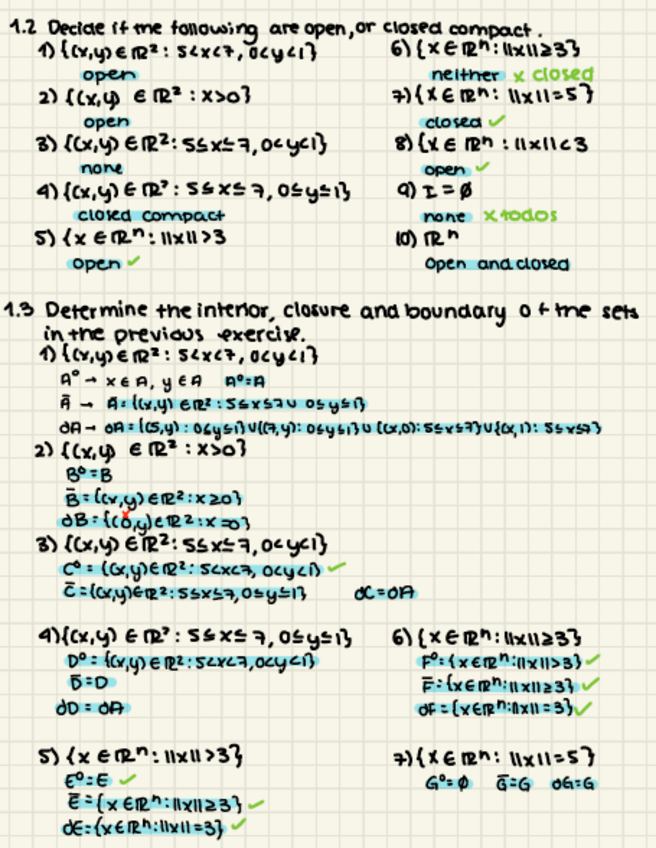 1.2 Decide if the following are open, or closed compact.
1) {(x,y) ∈ ℝ² : 5<x<7, 0<y<1}
open
2) {(x,y) ∈ ℝ² : x>0}
open
3) {(x,y) ∈ ℝ² : 5≤x≤7, 0<y<1}
none
4) {(x,y) ∈ ℝ² : 5≤x≤7, 0≤y≤1}
closed compact
5) {x ∈ ℝⁿ : ||x||>3
open ✓
6) {x ∈ ℝⁿ : ||x||≥3}
neither x closed
7) {x ∈ ℝⁿ : ||x||=5}
closed ✓
8) {x ∈ ℝⁿ : ||x||<3
open ✓
9) I = ∅
none x todos
10) ℝⁿ
Open and closed
1.3 Determine the interior, closure and boundary of the sets
in the previous exercise.
1) {(x,y) ∈ ℝ² : 5<x<7, 0<y<1}
A° → x ∈ A, y ∈ A A°=A
Ā → Ā = {(x,y) ∈ ℝ² : 5≤x≤7 ∪ 0≤y≤1}
∂A → ∂A = {(5,y) : 0≤y≤1} ∪ {(7,y) : 0≤y≤1} ∪ {(x,0) : 5≤x≤7} ∪ {(x,1) : 5≤x≤7}
2) {(x,y) ∈ ℝ² : x>0}
B°=B
B̄ = {(x,y) ∈ ℝ² : x≥0}
∂B = {(0,y) ∈ ℝ² : x=0}
x
3) {(x,y) ∈ ℝ² : 5≤x≤7, 0<y<1}
C° = {(x,y) ∈ ℝ² : 5<x<7, 0<y<1} ✓
C̄ = {(x,y) ∈ ℝ² : 5≤x≤7, 0≤y≤1} ∂C=∂A
4) {(x,y) ∈ ℝ² : 5≤x≤7, 0≤y≤1}
D° = {(x,y) ∈ ℝ² : 5<x<7, 0<y<1}
D̄=D
∂D = ∂A
5) {x ∈ ℝⁿ : ||x||>3}
E°=E ✓
Ē = {x ∈ ℝⁿ : ||x||≥3} ✓
∂E = {x ∈ ℝⁿ : ||x||=3} ✓
6) {x ∈ ℝⁿ : ||x||≥3}
F° = {x ∈ ℝⁿ : ||x||>3} ✓
F̄ = {x ∈ ℝⁿ : ||x||≥3} ✓
∂F = {x ∈ ℝⁿ : ||x||=3} ✓
7) {x ∈ ℝⁿ : ||x||=5}
G°=∅ Ḡ=G ∂G=G